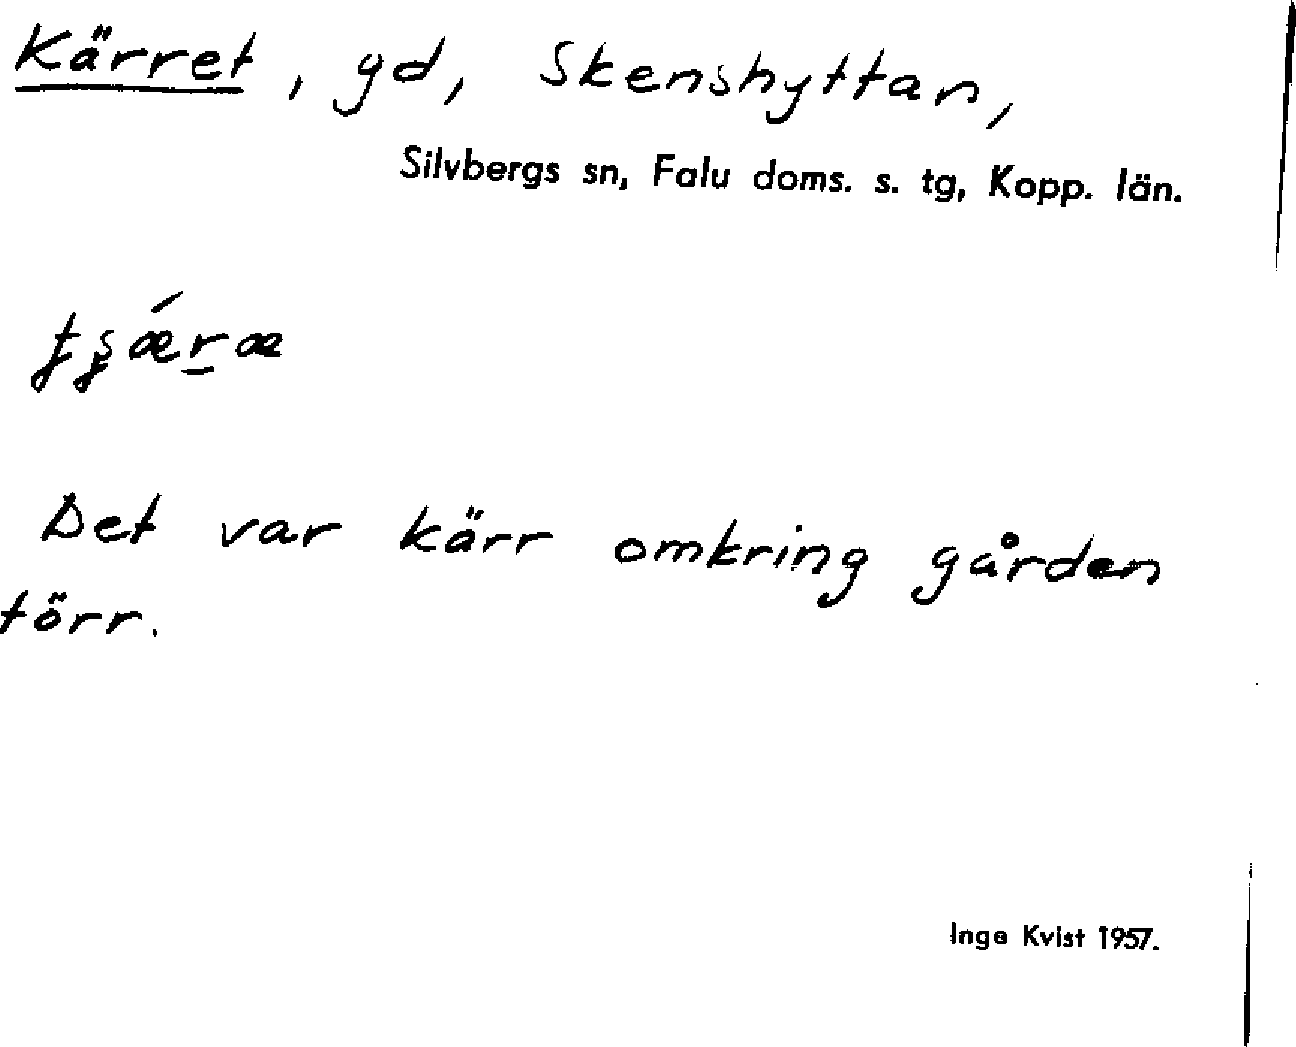 Kärret, gd, Skenshyttan,
Silvbergs sn, Falu doms. s. tg, Kopp. län.
tʂǽræ
Det var kärr omkring gården
törr.
Inga Kvist 1957.